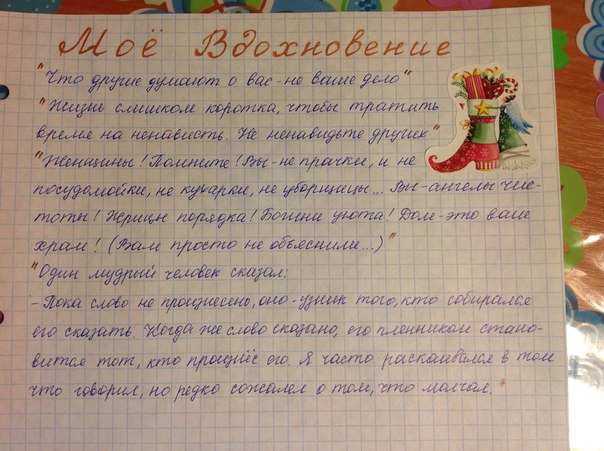 Моё Вдохновение
"Что другие думают о вас - не ваше дело"
"Жизнь слишком коротка, чтобы тратить
время на ненависть. Не ненавидьте других"
"Женщины! Помните! Вы - не прачки, и не
посудомойки, не кухарки, не уборщицы... Вы - ангелы чис-
тоты! Жрицы порядка! Богини уюта! Дом - это ваш
храм! (Вам просто не объяснили...)"
"Один мудрый человек сказал:
- Пока слово не произнесено, оно - узник того, кто собирался
его сказать. Когда же слово сказано, его пленником стано-
вится тот, кто произнёс его. Я часто раскаивался в том
что говорил, но редко сожалел о том, что молчал."